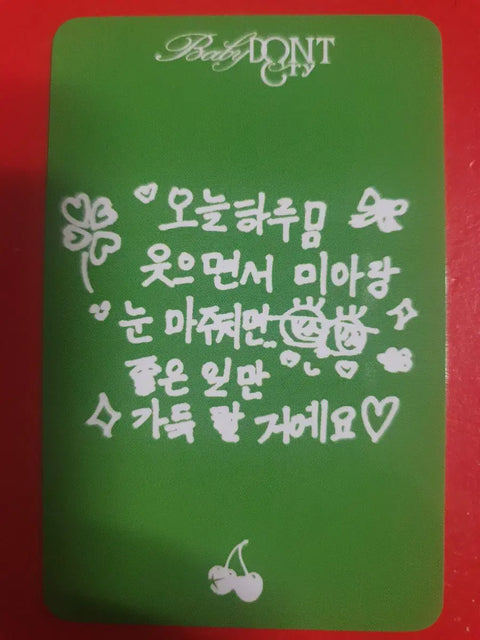 Baby DONT Cry
오늘하루몸
웃으면서 미아랑
눈 마주치면..
좋은 일만
가득 할 거예요